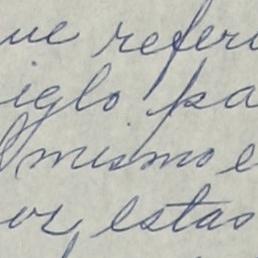 ue refer
iglo pa
l mismo e
or estas